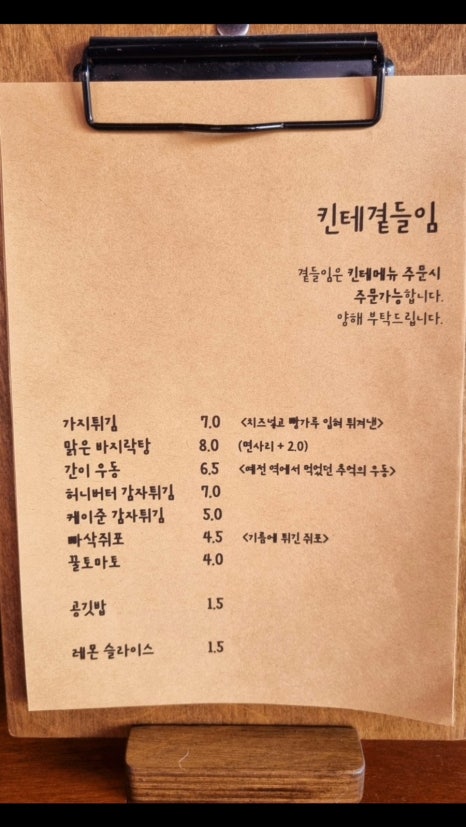 킨테곁들임
곁들임은 킨테메뉴 주문시
주문가능합니다.
양해 부탁드립니다.
가지튀김 7.0 <치즈넣고 빵가루 입혀 튀겨낸>
맑은 바지락탕 8.0 (면사리 + 2.0)
간이 우동 6.5 <예전 역에서 먹었던 추억의 우동>
허니버터 감자튀김 7.0
케이준 감자튀김 5.0
빠삭쥐포 4.5 <기름에 튀긴 쥐포>
꿀토마토 4.0
공깃밥 1.5
레몬 슬라이스 1.5